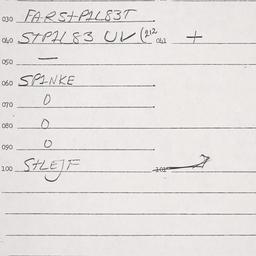 030 FARS+P1L83T
040 S+P1L83 UV (212 041 +
050 —
060 SP1NKE
070 0
080 0
090 0
100 S+LEJF 101